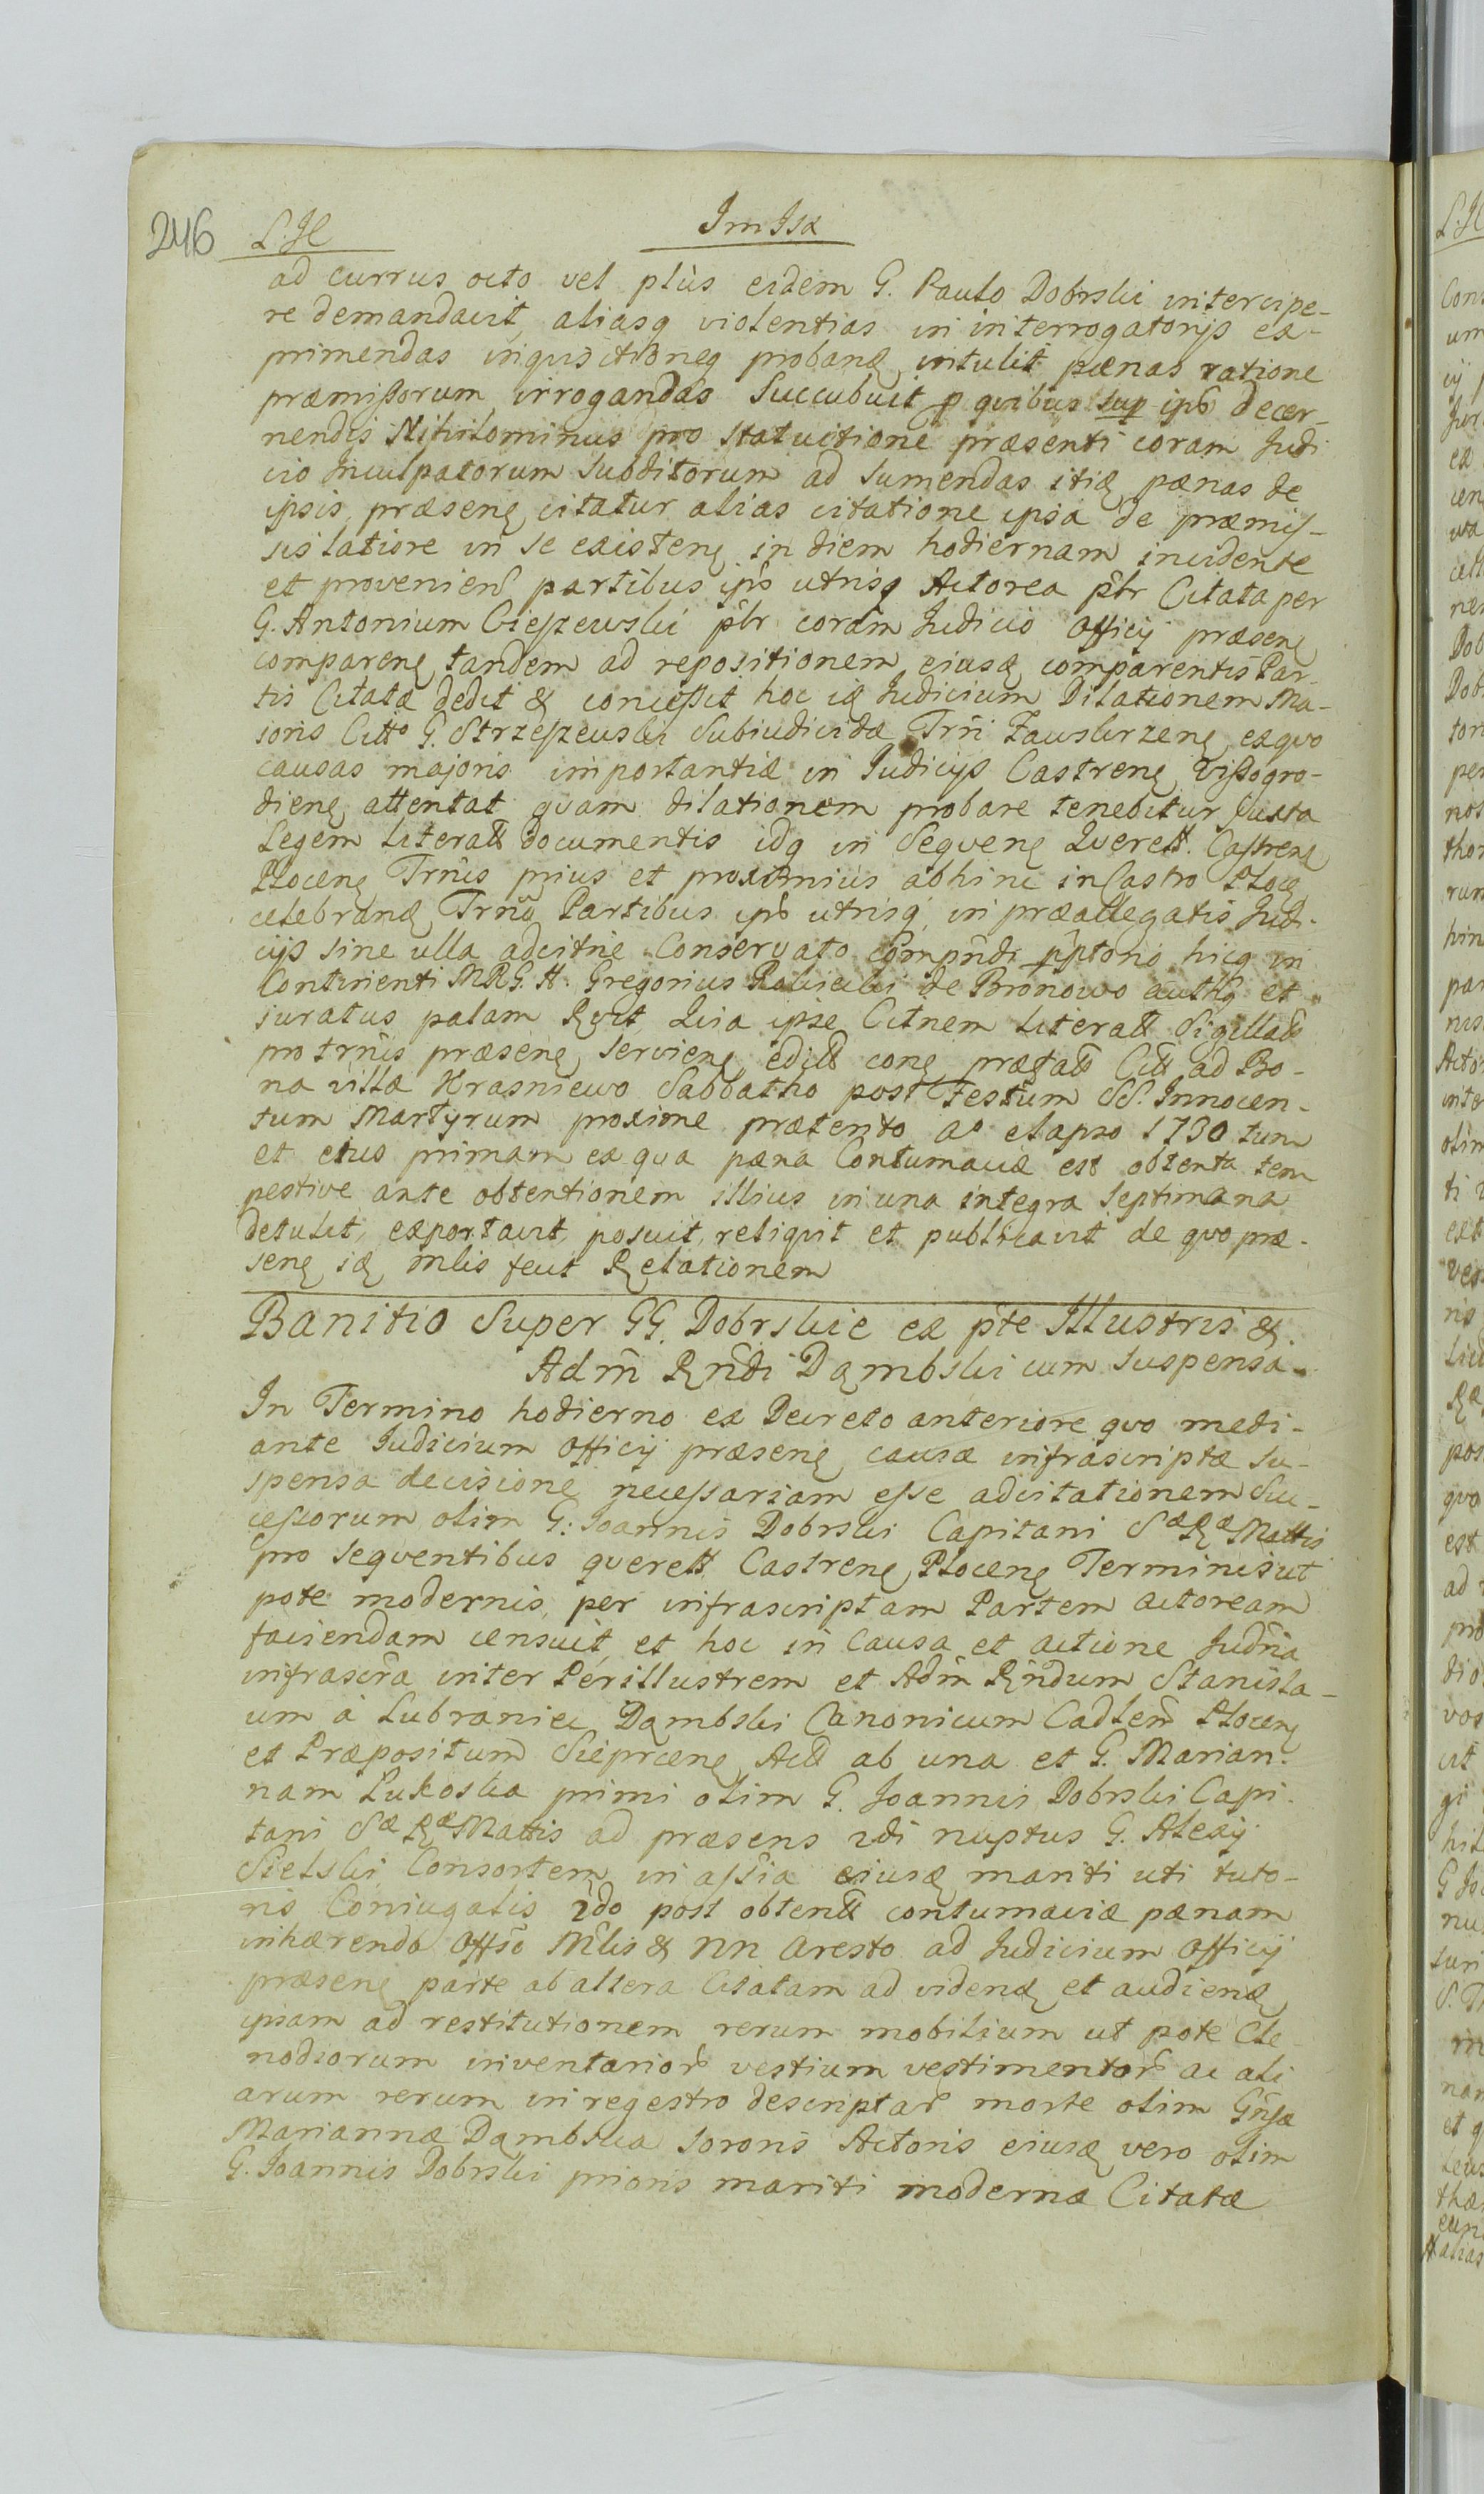 246 L. H Im Isa
ad currus octo vel plùs eidem G. Paulo Dobrski intercipe-
re demandavit, aliasq violentias in interrogatorijs ex-
primendas inquisitioneq probanę intulit pœnas ratione
præmissorum irrogandas Succubuit p quibus sup ipŝ decer-
nendis Nihilominus pro Statuitione præsenti coram Judi
cio Inculpatorum Subditorum ad sumendas itię pœnas de
ipsis præsenę citatur alias citatione ipsa de præmis-
sis latiore in se existenę in diem hodiernam incidente
et provenien̂ partibus ipŝ utrisq Actorea p̂br Citata per
G. Antonium Cieszewski p̂br coram Judicio Officij præsenę
comparenę tandem ad repositionem eiusdę comparentis Par-
tis Citatæ dedit & concessit hoc ię Judicium Dilationem Ma-
ioris Citto G. Strzeszewski Subiudicidæ Trn̂i Zauskrzenę exquo
causas majoris importantiæ in Judicijs Castrenę Vissogro-
dienę attentat quam dilationem probare tenebitur Juxta
Legem Literatt documentis idq in Sequenę Querett. Castrenę
Plocenę Trn̂is prius et proximius abhinc in Castro Plocę
celebrandę Trn̂o Partibus ipŝ utrisq in præallegatis Judi-
cijs sine ulla adcitn̂e Conservato p̂ptorio hicq in
Continenti MRG. H. Gregorius de Bronowo authq et
juratus palam Rgvit Quia ipse Citnem Literatt Sigillatt
pro trn̂is præsenę servienę editt conę prætatt Citt ad Bo-
na villæ Krasniewo Sabbatho post Festum SS. Innocen-
tum Martyrum proxime præterito Ao elapso 1730 tum
et eius primam ex qua pæna Contumaciæ est obtenta tem
pestive ante obtentionem illius in una integra septimana
detulit, exportavit, posuit, reliquit et publicavit de quo præ-
senę ię mlis fecit Relationem
Banitio Super GG. Dobrskie ex p̂te Illustris &
Adm̂ Rn̂di Dąmbski cum suspensa
In Termino hodierno ex Decreto anteriore quo medi-
ante Judicium Officij præsenę causæ infrascriptæ su-
spensa decisione necessariam esse adcitationem Suc-
cessorum olim G. Joannis Dobrski Capitani Sæ Ræ Mattis
pro sequentibus querett Castrenę Plocenę Terminis ut
pote modernis, per infrascriptam Partem actoream
faciendam censuit, et hoc in causa et actione Judn̂a
infrascr̂a inter Perillustrem et Adm̂ Rn̂dum Stanisla-
um à Lubraniec Dąmbski Canonicum Cadlem̂ Plocenę
et Præpositum Sieprcenę Actt ab una et G. Marian-
nam Lukoska primi olim G. Joannis Dobrski Capi-
tani Sæ Ræ Mattis ad præsens 2di nuptus G. Alexij
Sielski Consortem in assia eiusdę mariti uti tuto-
ris Coniugalis 2do post obtentt contumaciæ pænam
inhærendo Offŝo Mlis & nn Aresto ad Judicium Officij
præsenę parte ab altera Citatam ad videndę et audiendę
ipsam ad restitutionem rerum mobilium ut pote Cle
nodiorum inventarior̂ vestium vestimentor̂ ac ali
arum rerum in regestro descriptar̂ morte olim Gn̂sæ
Mariannæ Dąmbska sororis Actoris eiusdę vero olim
G. Joannis Dobrski prioris mariti modernæ Citatæ